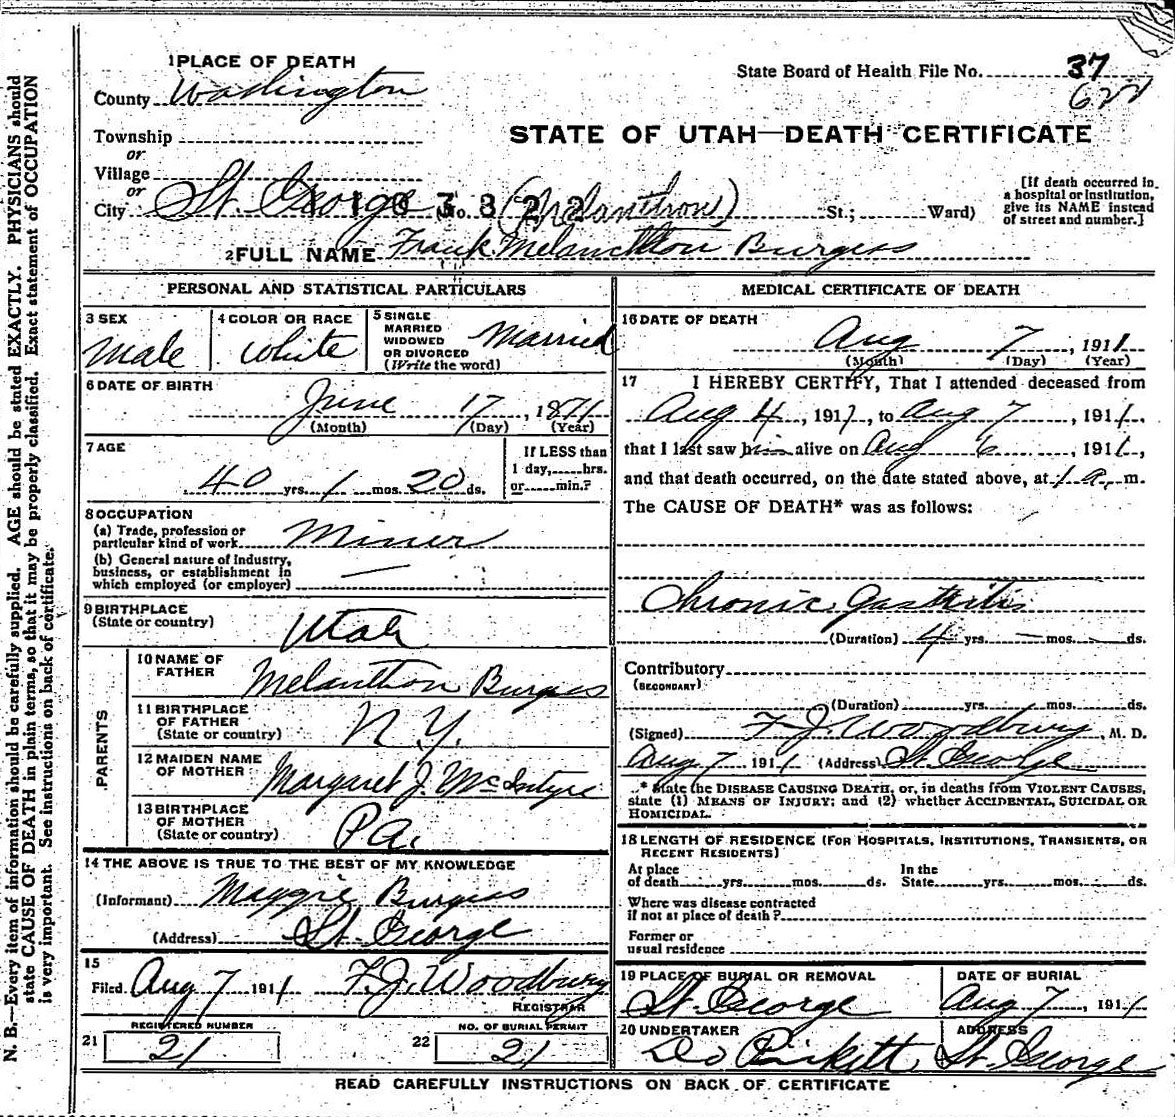 1 PLACE OF DEATH
State Board of Health File No. 37
County Washington
622
Township
STATE OF UTAH—DEATH CERTIFICATE
or
Village
or
City St. George No. (Melanthron) St.; Ward)
[If death occurred in a hospital or institution, give its NAME instead of street and number.]
2 FULL NAME Frank Melancthon Burgess
PERSONAL AND STATISTICAL PARTICULARS
3 SEX
Male
4 COLOR OR RACE
White
5 SINGLE
MARRIED
WIDOWED
OR DIVORCED
(Write the word)
Married
6 DATE OF BIRTH
June 17, 1871
(Month) (Day) (Year)
7 AGE
40 yrs. 1 mos. 20 ds.
If LESS than
1 day, hrs.
or min.?
8 OCCUPATION
(a) Trade, profession or
particular kind of work Miner
(b) General nature of industry,
business, or establishment in
which employed (or employer) —
9 BIRTHPLACE
(State or country) Utah
PARENTS
10 NAME OF
FATHER Melanthon Burgess
11 BIRTHPLACE
OF FATHER
(State or country) N.Y.
12 MAIDEN NAME
OF MOTHER Margaret J. McIntyre
13 BIRTHPLACE
OF MOTHER
(State or country) Pa.
14 THE ABOVE IS TRUE TO THE BEST OF MY KNOWLEDGE
(Informant) Maggie Burgess
(Address) St. George
15
Filed Aug 7 1911 F.J. Woodbury
REGISTRAR
REGISTERED NUMBER
21 21
NO. OF BURIAL PERMIT
22 21
MEDICAL CERTIFICATE OF DEATH
16 DATE OF DEATH
Aug 7, 1911
(Month) (Day) (Year)
17 I HEREBY CERTIFY, That I attended deceased from
Aug 4, 1911, to Aug 7, 1911,
that I last saw him alive on Aug 6, 1911,
and that death occurred, on the date stated above, at 1 a. m.
The CAUSE OF DEATH* was as follows:
Chronic Gastritis
(Duration) 4 yrs. — mos. — ds.
Contributory
(SECONDARY)
(Duration) yrs. mos. ds.
(Signed) F.J. Woodbury, M. D.
Aug 7 1911 (Address) St. George
* State the DISEASE CAUSING DEATH, or, in deaths from VIOLENT CAUSES,
state (1) MEANS OF INJURY; and (2) whether ACCIDENTAL, SUICIDAL OR
HOMICIDAL.
18 LENGTH OF RESIDENCE (FOR HOSPITALS, INSTITUTIONS, TRANSIENTS, OR
RECENT RESIDENTS)
At place
of death yrs. mos. ds.
In the
State yrs. mos. ds.
Where was disease contracted
if not at place of death?
Former or
usual residence
19 PLACE OF BURIAL OR REMOVAL
St. George
DATE OF BURIAL
Aug 7, 1911
20 UNDERTAKER
Pickett
ADDRESS
St. George
READ CAREFULLY INSTRUCTIONS ON BACK OF CERTIFICATE
N. B.—Every item of information should be carefully supplied. AGE should be stated EXACTLY. PHYSICIANS should
state CAUSE OF DEATH in plain terms, so that it may be properly classified. Exact statement of OCCUPATION
is very important. See instructions on back of certificate.